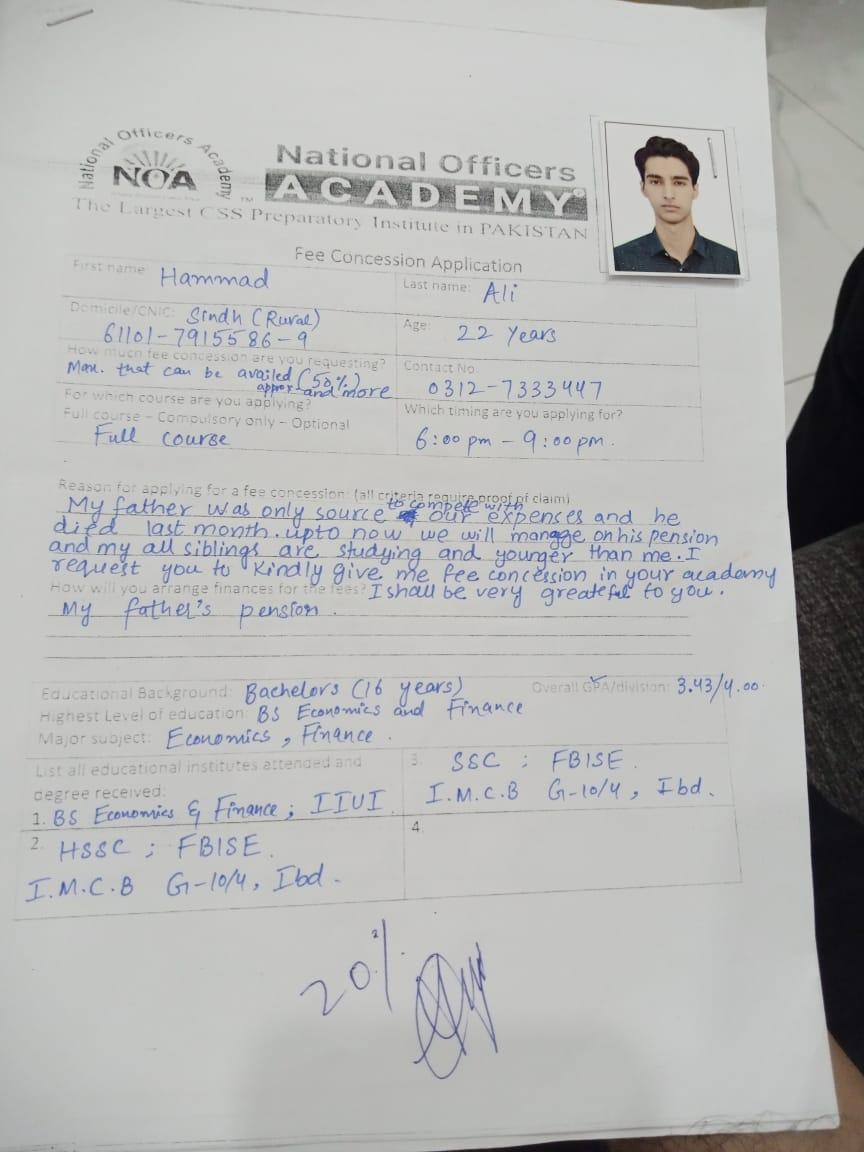 National Officers Academy
NOA
TM
National Officers
ACADEMY®
The Largest CSS Preparatory Institute in PAKISTAN
Fee Concession Application
First name: Hammad
Last name: Ali
Domicile/CNIC: Sindh (Rural)
61101-7915586-9
Age: 22 Years
How much fee concession are you requesting?
Max. that can be availed (50%)
approx and more
Contact No.
0312-7333447
For which course are you applying?
Full course – Compulsory only – Optional
Full Course
Which timing are you applying for?
6:00 pm - 9:00 pm.
Reason for applying for a fee concession: (all criteria require proof of claim)
My father was only source to compete with our expenses and he
died last month. upto now we will manage on his pension
and my all siblings are studying and younger than me. I
request you to kindly give me fee concession in your academy
How will you arrange finances for the fees? I shall be very greateful to you.
My father's pension.
Educational Background: Bachelors (16 years)
Overall GPA/division: 3.43/4.00.
Highest Level of education: BS Economics and Finance
Major subject: Economics, Finance.
List all educational institutes attended and
degree received:
1. BS Economics & Finance; IIUI.
2. HSSC; FBISE.
I.M.C.B G-10/4, Ibd.
3. SSC : FBISE.
I.M.C.B G-10/4, Ibd.
4.
20%